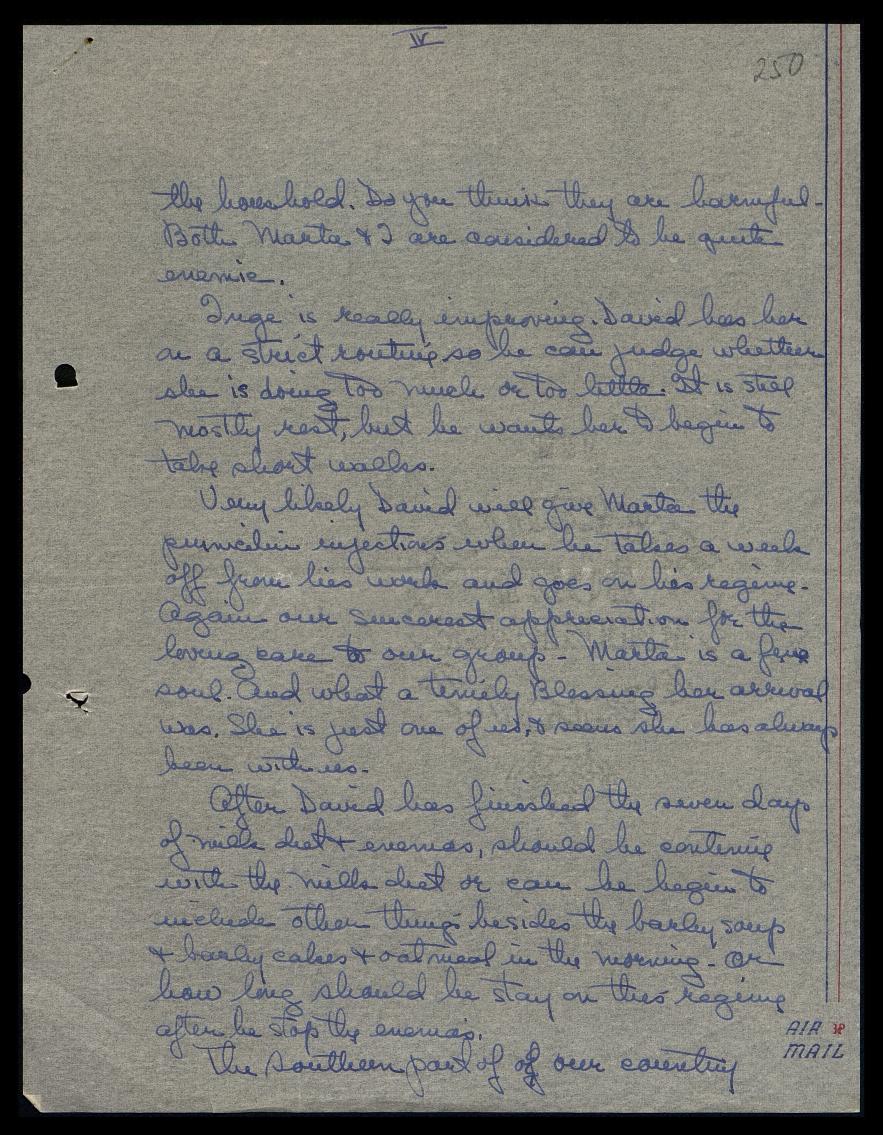 IV
250
the household. Do you think they are harmful -
Both Marta & I are considered to be quite
enemic.
Inge is really improving. David has her
on a strict routine so he can judge whether
she is doing too much or too little. It is still
mostly rest, but he wants her to begin to
take short walks.
Very likely David will give Marta the
pinicilin injections when he takes a week
off from his work and goes on his regime.
Again our sincerest appreciation for the
loving care to our group - Marta is a fine
soul. And what a timely Blessing her arrival
was. She is just one of us, & seems she has always
been with us.
After David has finished the seven days
of milk diet & enemas, should he continue
with the milk diet or can he begin to
include other things besides the barley soup
& barley cakes & oatmeal in the morning - Or
how long should he stay on this regime
after he stop the enemas.
The southern part of of our country
AIR
MAIL